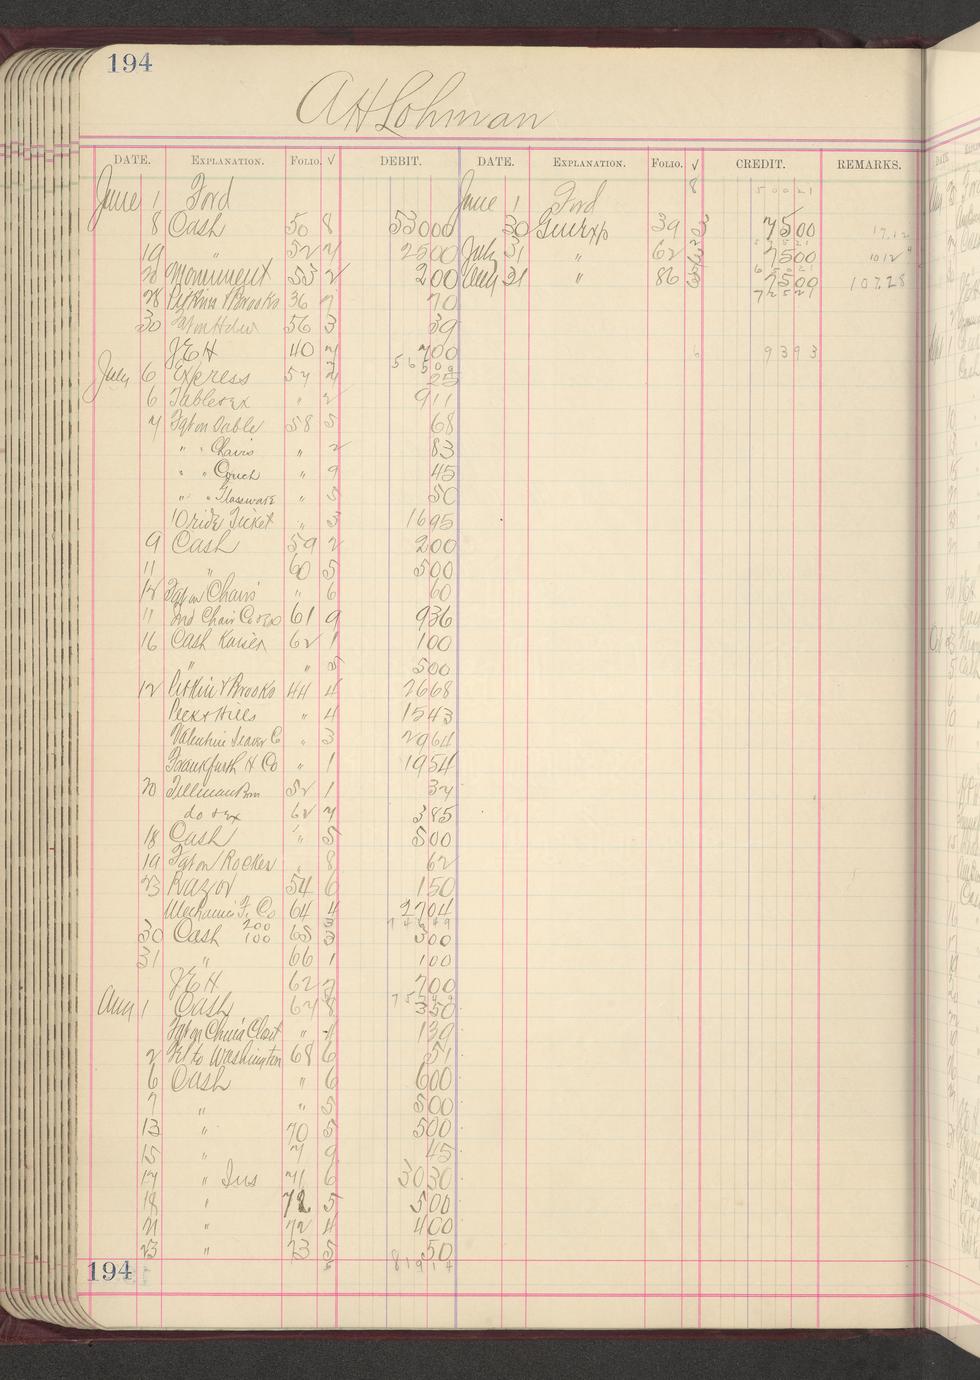 194
A H Lohman
DATE. EXPLANATION. FOLIO. √ DEBIT. DATE. EXPLANATION. FOLIO. √ CREDIT. REMARKS.
June 1 Ford June 1 Ford 8 50021
8 Cash 50 8 53000 30 GenExp 39 3 7500
19 " 52 7 2500 July 31 " 62 7500 1012
Monument 53 2 200 Aug 31 " 86 7500 107.28
28 Pitkin & Brooks 36 7 70 72529
30 Fgt on Hdw 56 3 39
JEH 40 7 700 6 9393
56509
July 6 Express 57 25
6 Table & Ex " 2 911
7 Fgt on Table 58 5 68
" " Chairs " 2 83
" " Couch " 9 45
" " Glassware " 5 50
10 ride Ticket " 3 1695
9 Cash 59 2 200
11 " 60 5 500
12 Fgt on Chairs " 6 60
11 Ind Chair Co 61 9 936
16 Cash 62 1 100
" " 5 500
12 Pitkin & Brooks 44 4 2668
Peck & Hills " 4 1543
Valentine Seaver C " 3 2964
Frankfurth H Co " 1 1954
20 Tillman Bro 52 1 37
do & Ex 62 7 385
18 Cash " 5 500
19 Fgt on Rocker " 8 62
23 Razor 54 6 150
Mechanics F. Co 64 4 2704
30 Cash 200 100 65 3 300
31 " 66 1 100
JEH 62 7 700
Aug 1 Cash 67 8 350
Fgt on China Closet " 4 139
2 Tel to Washington 68 6 51
6 Cash " 6 600
7 " " 5 500
13 " 70 5 500
15 " 7 9 45
17 " Ins 71 6 3030
18 " 72 5 500
21 " 72 4 400
23 " 73 5 50
81914
194